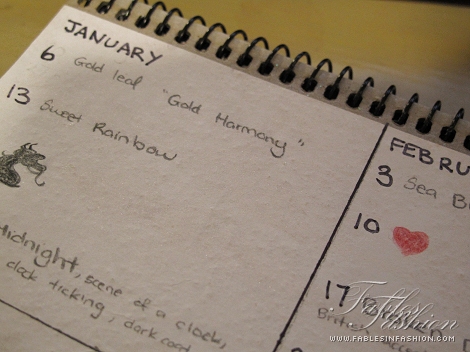 JANUARY
6 Gold leaf "Gold Harmony"
13 Sweet Rainbow
Midnight, scene of a clock,
clock ticking, dark coat
FEBRU
3 Sea B
10
17
Fables in Fashion
WWW.FABLESINFASHION.COM